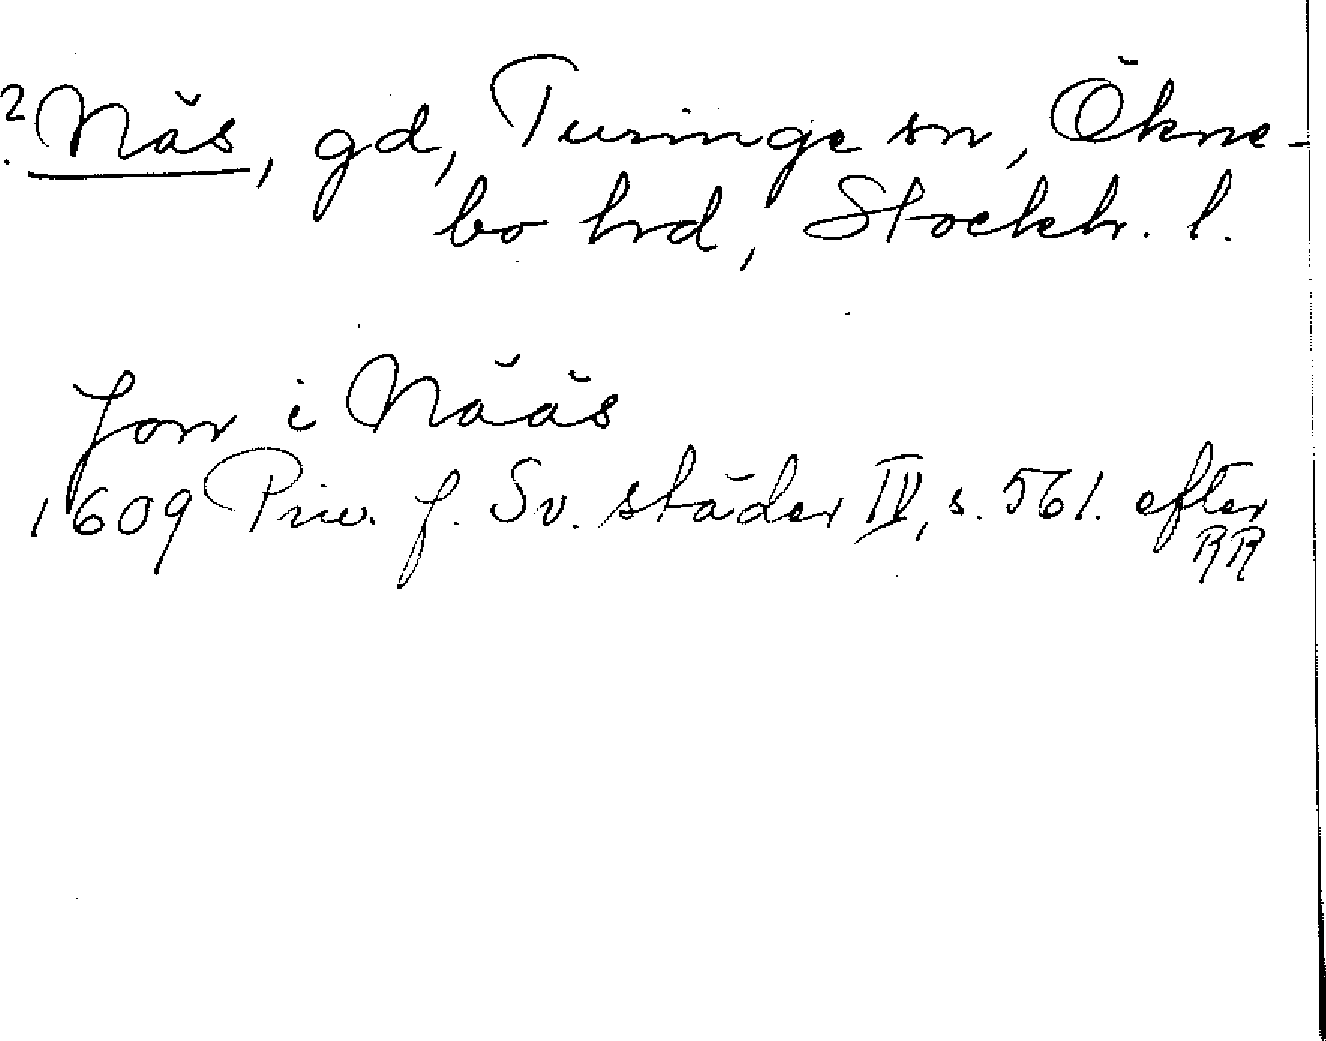 ? Näs, gd, Turinge sn, Ökne-
bo hd, Stockh. l.
Jon i Nääs
1609 Priv. f. Sv. städer IV, s. 561. efter
RR